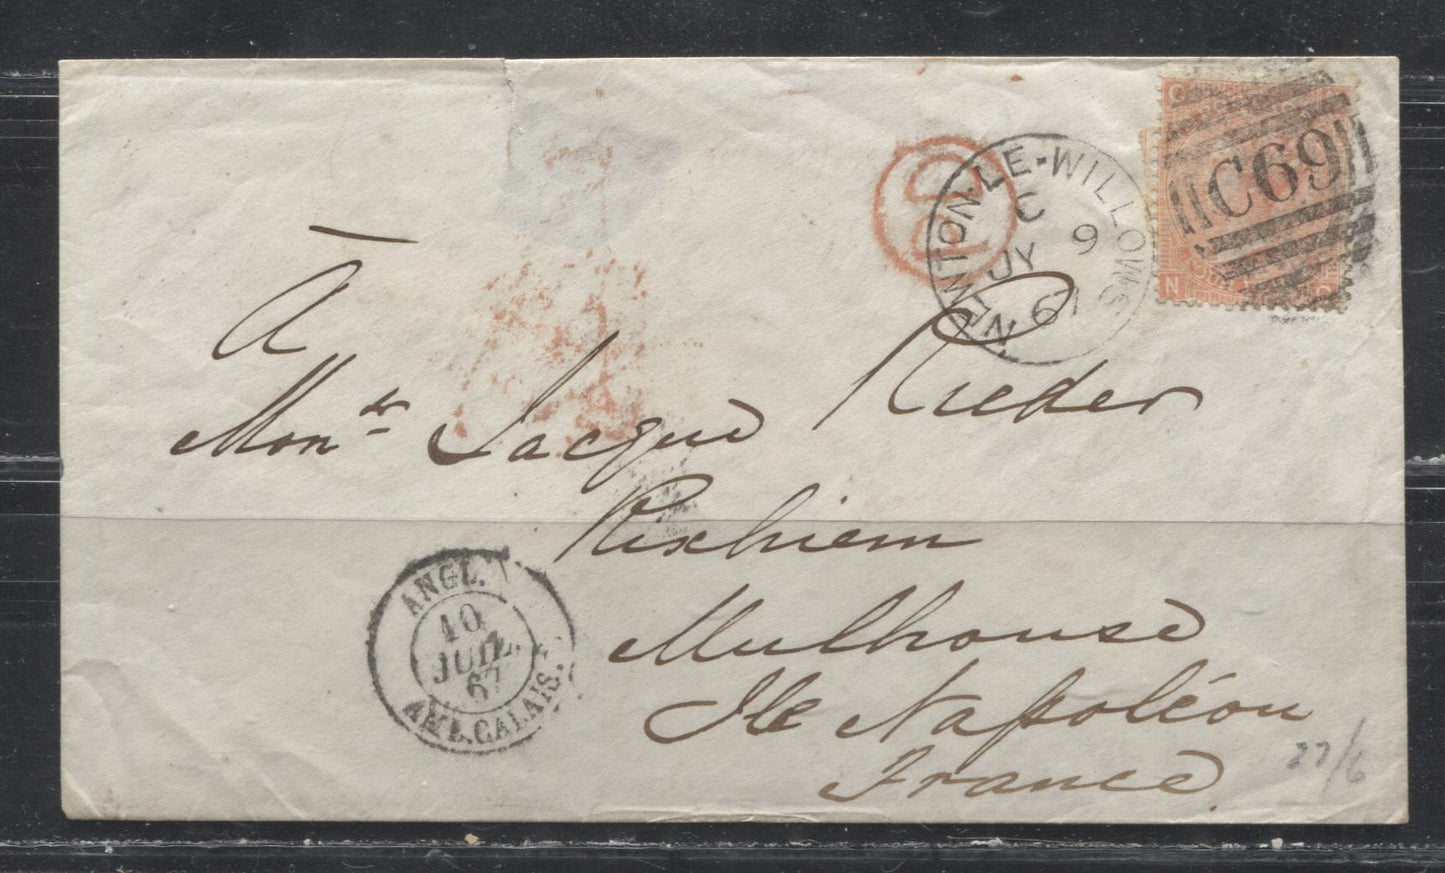 NEWTON-LE-WILLOWS
C
JY 9
67
C69
PD
A
Monsr Jacque Rieder
Rixhiem
Mulhouse
Ile Napoléon
France
ANGL.
10
JUIL.
67
AMB.CALAIS.
27/6
N